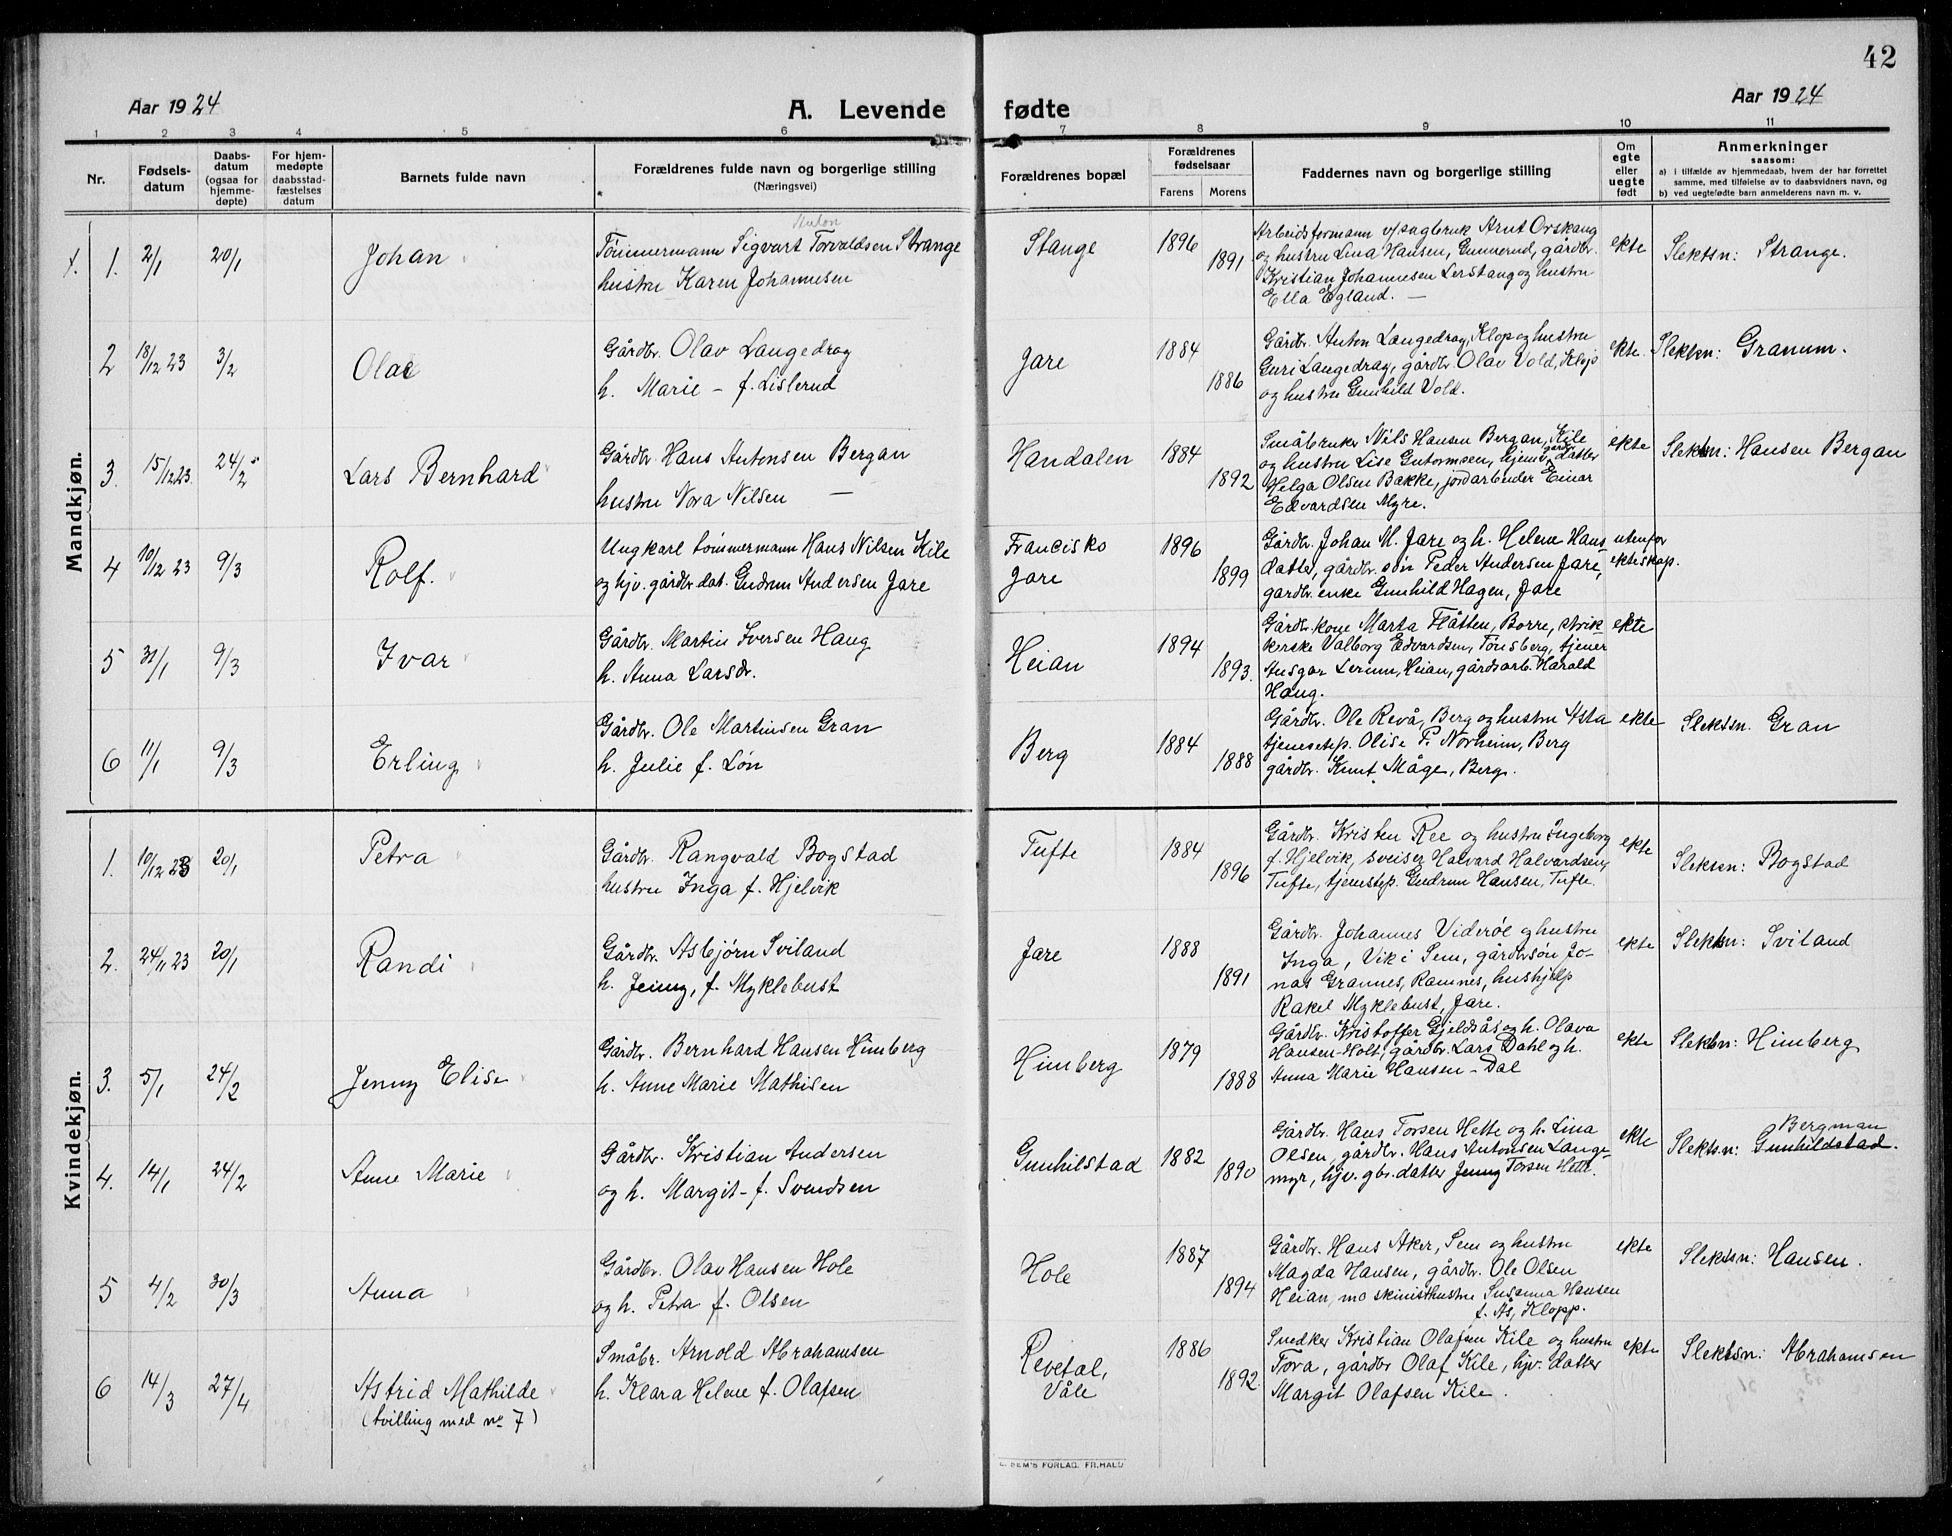 42
Aar 1924
A. Levende fødte
Aar 1924
1 2 3 4 5 6 7 8 9 10 11
Nr.
Fødsels-
datum
Daabs-
datum
(ogsaa for
hjemme-
døpte)
For hjem-
medøpte
daabsstad-
fæstelses
datum
Barnets fulde navn
Forældrenes fulde navn og borgerlige stilling
(Næringsvei)
Forældrenes bopæl
Forældrenes
fødselsaar
Farens Morens
Faddernes navn og borgerlige stilling
Om
egte
eller
uegte
født
Anmerkninger
saasom:
a) i tilfælde av hjemmedaab, hvem der har forrettet
samme, med tilføielse av to daabsvidners navn, og
b) ved uegtefødte barn anmelderens navn m. v.
Mandkjøn.
1. 2/1 20/1 Johan
Anton
Tömmermann Sigvart Torvaldsen Strange
hustru Karen Johannesen
Stange 1896 1891
Arbeidsformann v/sagbruk Arnt Orskaug
og hustru Lina Hansen, Gunnerud, gårdbr.
Kristian Johannesen Lerstang og hustru
Ella Egland. —
ekte Slektsn: Strange.
2 18/12 23 3/2 Olav
Gårdbr. Olav Langedrag
h. Marie - f. Lislerud
Jare 1884 1886
Gårdbr. Anton Langedrag, Klop og hustru
Guri Langedrag, gårdbr. Olav Vold, Klop
og hustru Gunhild Vold.
ekte. Slektsn: Granum.
3. 15/12 23. 24/2 Lars Bernhard
Gårdbr. Hans Antonsen Bergan
hustru Nora Nilsen —
Handalen 1884 1892
Småbruker Nils Hansen Bergan, Kile
og hustru Lise Gutormsen, hjemv. gårdbr. datter
Helga Olsen Bakke, jordarbeider Einar
Edvardsen Myre.
ekte Slektsn: Hansen Bergan
4 10/12 23 9/3 Rolf.
Ungkarl tömmermann Hans Nilsen Kile
og hjv. gårdbr. dat. Gudrun Andersen Jare
Francisko
Jare
1896 1899
Gårdbr. Johan M. Jare og h. Helene Hans-
datter, gårdbr. søn Peder Andersen Jare,
gardbr. enke Gunhild Hagen, Jare
utenfor
ekteskap.
5 31/1 9/3 Ivar
Gårdbr. Martin Iversen Haug
h. Anna Larsdr.
Heian 1894 1893.
Gårdbr. kone Marta Flåtten, Borre, strik-
kerske Valborg Edvardsen, Tönsberg, tjener
Ansgar Lerum, Heian, gårdsarb. Harald
Haug.
ekte
6 11/1 9/3 Erling
Gårdbr. Ole Martinsen Gran
h. Julie f. Lön
Berg 1884 1888
Gårdbr. Ole Revå, Berg og hustru Asta
tjenestep. Olise P. Norheim, Berg
gårdbr. Knut Måge, Berg.
ekte Slektsn. Gran
Kvindekjøn.
1. 10/12 23 20/1 Petra
Gårdbr. Rangvald Bogstad
hustru Inga f. Hjelvik
Tufte 1884 1896
Gårdbr. Kristen Ree og hustru Ingeborg
f. Hjelvik, sveiser Halvard Halvardsen,
Tufte, tjenestep. Gudrun Hansen, Tufte.
ekte Sleksn: Bogstad
2. 24/11 23 20/1 Randi
Gårdbr. Asbjørn Sviland
h. Jenny, f. Myklebust
Jare 1888 1891
Gårdbr. Johannes Viderøe og hustru
Inga, Vik i Sem, gårdbr.søn Jo-
nas Grannes, Ramnes, hushjelp
Rakel Myklebust, Jare.
ekte Slektsn: Sviland
3. 5/1 24/2 Jenny Elise
Gårdbr. Bernhard Hansen Himberg
h. Anne Marie Mathisen
Himberg 1879 1888
Gårdbr. Kristoffer Gjeldsås og h. Olava
Hansen-Holt, gårdbr. Lars Dahl og h.
Anna Marie Hansen - Dal
ekte Slektsn: Himberg
4. 14/1 24/2 Anne Marie
Gårdbr. Kristian Andersen
og h. Margit - f. Svendsen
Gunhilstad 1882 1890
Gårdbr. Hans Torsen Hette og h. Lina
Olsen, gårdbr. Hans Antonsen Lange-
myr, hjv. gbr. datter Jenny Torsen Hette.
ekte
Bergman
Slektsn: Gunhildstad.
5 4/2 30/3 Anna
Gårdbr. Olav Hansen Hole
og h. Petra f. Olsen
Hole 1887 1894
Gårdbr. Hans Aker, Sem og hustru
Magda Hansen, gårdbr. Ole Olsen
Heian, maskinisthustru Susanna Hansen
f. Ås, Klopp.
ekte Slektsn: Hansen.
6 14/3 27/4 Astrid Mathilde
(tvilling med no 7)
Småbr. Arnold Abrahamsen
h. Klara Helene f. Olafsen
Revetal,
Våle
1886 1892.
Snedker Kristian Olafsen Kile og hustru
Tora, gårdbr Olaf Kile, hjv. datter
Margit Olafsen Kile.
ekte Slektsn: Abrahamsen
SEM'S FORLAG. FR.HALD